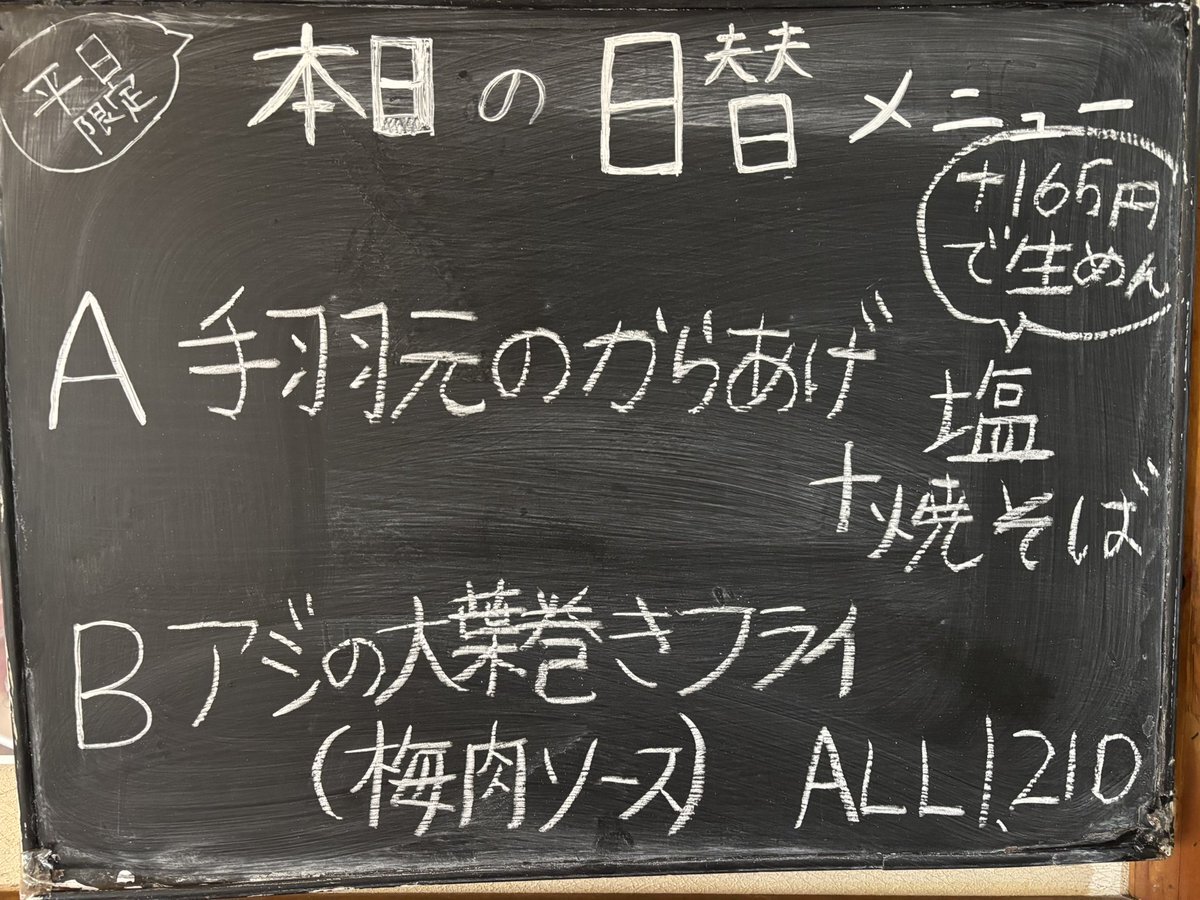 平日
限定
本日の日替メニュー
+165円
で生めん
A 手羽元のからあげ
塩
+焼そば
B アジの大葉巻きフライ
(梅肉ソース) ALL 1,210